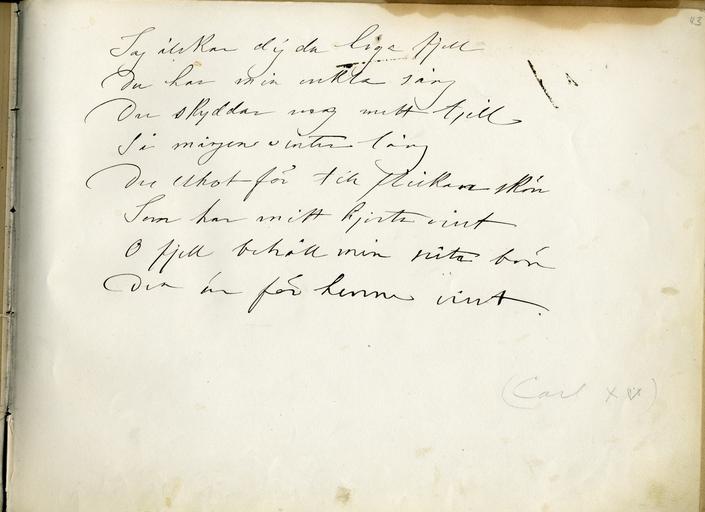 43
Jag älskar dig du liga fjell
Du har min enkla sång
Du skyddar mag mitt tjell
Så mången vinter lång
Du ekot för till flickan skön
Som har mitt hjerta vint
O fjell behåll min sista bön
Den är för henne vint.
(Carl XV)